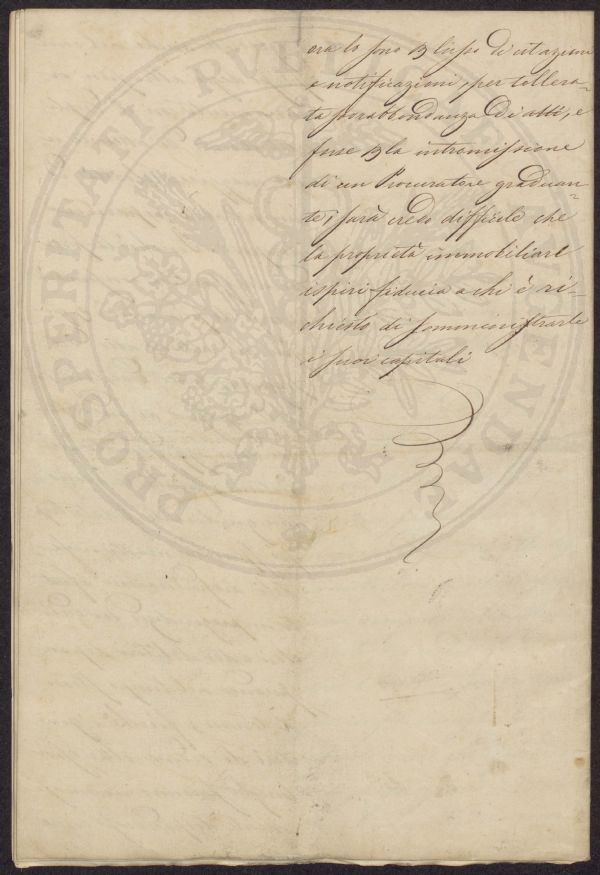 ora lo sono p lusso di citazioni
o notificazioni, per tollera-
ta sovrabbondanza di atti, e
forse p la intromissione
di un Procuratore graduan-
te, sarà credo difficile che
la proprietà immobiliare
ispiri fiducia a chi è ri-
chiesto di somministrarle
i suoi capitali
PROSPERITATI PUBLICAE AUGENDAE